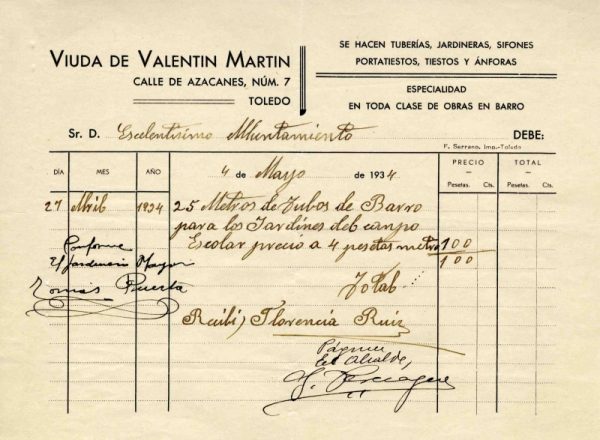 VIUDA DE VALENTIN MARTIN
CALLE DE AZACANES, NÚM. 7
TOLEDO
SE HACEN TUBERÍAS, JARDINERAS, SIFONES
PORTATIESTOS, TIESTOS Y ÁNFORAS
ESPECIALIDAD
EN TODA CLASE DE OBRAS EN BARRO
Sr. D. Escelentisimo Alluntamiento DEBE:
F. Serrano. Imp.-Toledo
DÍA MES AÑO 4 de Mayo de 1934 PRECIO TOTAL
Pesetas. Cts. Pesetas. Cts.
27 Abril 1934 25 Metros de Tubos de Barro
para los Jardines del campo
Escolar precio a 4 pesetas metro 100
100
Conforme
El Jardinero Mayor
Tomás Puerta
Total
Recibi, Florencia Ruiz
Páguese
El Alcalde,